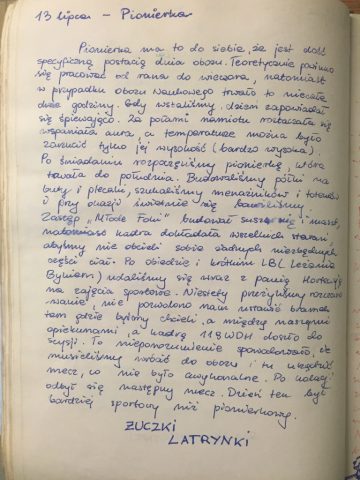 13 lipca - Pionierka
Pionierka ma to do siebie, że jest dość
specyficzną postacią dnia obozu. Teoretycznie powinno
się pracować od rana do wieczora, natomiast
w przypadku obozu Naukowego trwało to niecałe
dwie godziny. Gdy wstaliśmy, dzień zapowiadał
się śpiewająco. Za połami namiotu roztaczała się
wspaniała aura, a temperaturze można było
zarzucić tylko jej wysokość (bardzo wysoką).
Po śniadaniu rozpoczęliśmy pionierkę, która
trwała do południa. Budowaliśmy półki na
buty i plecaki, szukaliśmy menażników i totemów
i przy okazji świetnie się bawiliśmy.
Zastęp "Młode Foki" budował suszarnię i maszt,
natomiast kadra dokładała wszelkich starań,
abyśmy nie obcięli sobie żadnych niezbędnych
części ciał. Po obiedzie i krótkim LBL (Leżenie
Bykiem) udaliśmy się wraz z panią Hortensją
na zajęcia sportowe. Niestety przeżyliśmy rozczaro-
wanie, nie pozwolono nam ustawić bramek
tam gdzie byśmy chcieli, a między naszymi
opiekunami, a kadrą 118 WDH doszło do
scysji. To nieporozumienie spowodowało, że
musieliśmy wrócić do obozu i tu urządzić
mecz, co nie było wykonalne. Po kolacji
odbył się następny mecz. Dzień ten był
bardziej sportowy niż pionierkowy.
ŻUCZKI
LATRYNKI